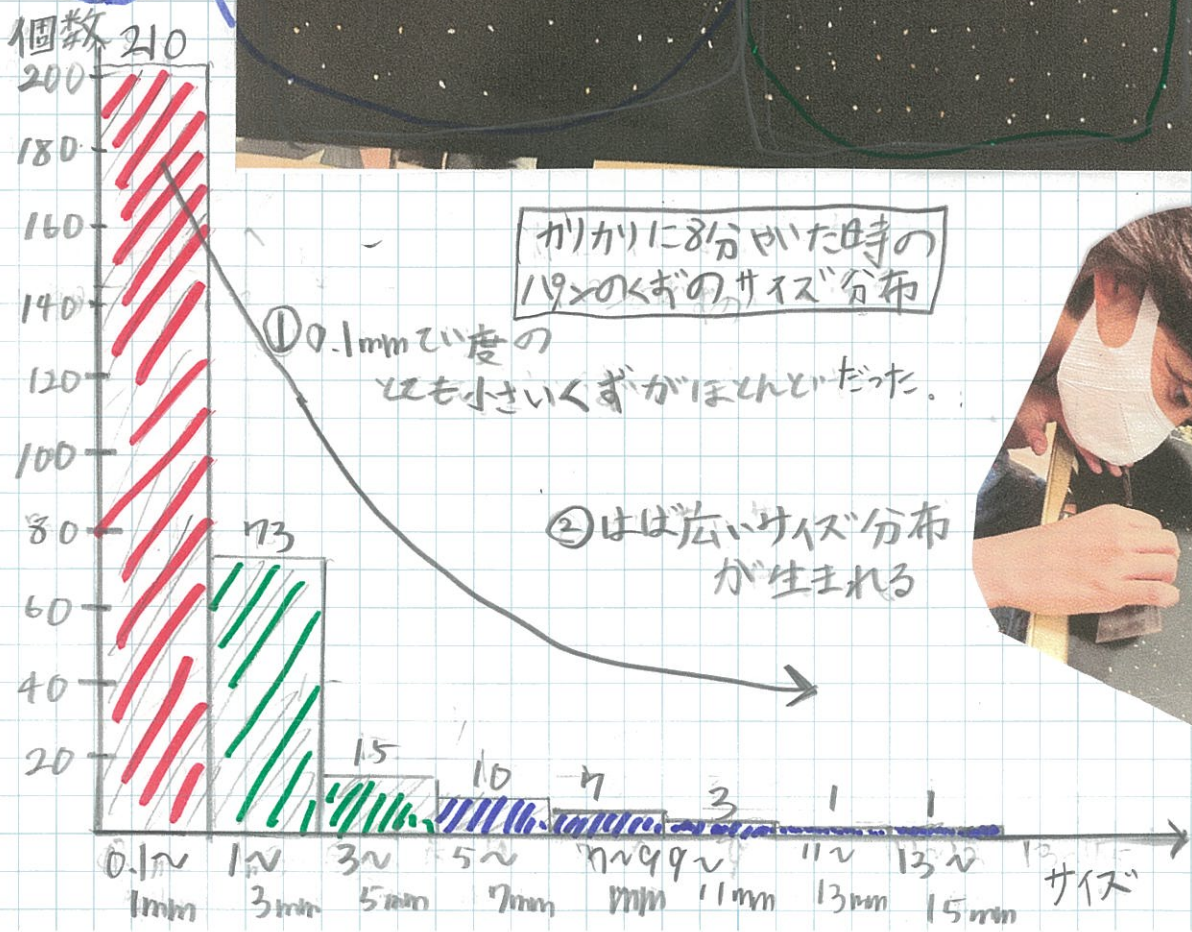 個数
210
200
180
160
140
120
100
80
60
40
20
カリカリに8分やいた時の
パンのくずのサイズ分布
①0.1mmてい度の
とても小さいくずがほとんどだった。
②はば広いサイズ分布
が生まれる
73
15
10
7
3
1
1
0.1～
1mm
1～
3mm
3～
5mm
5～
7mm
7～9
mm
9～
11mm
11～
13mm
13～
15mm
サイズ